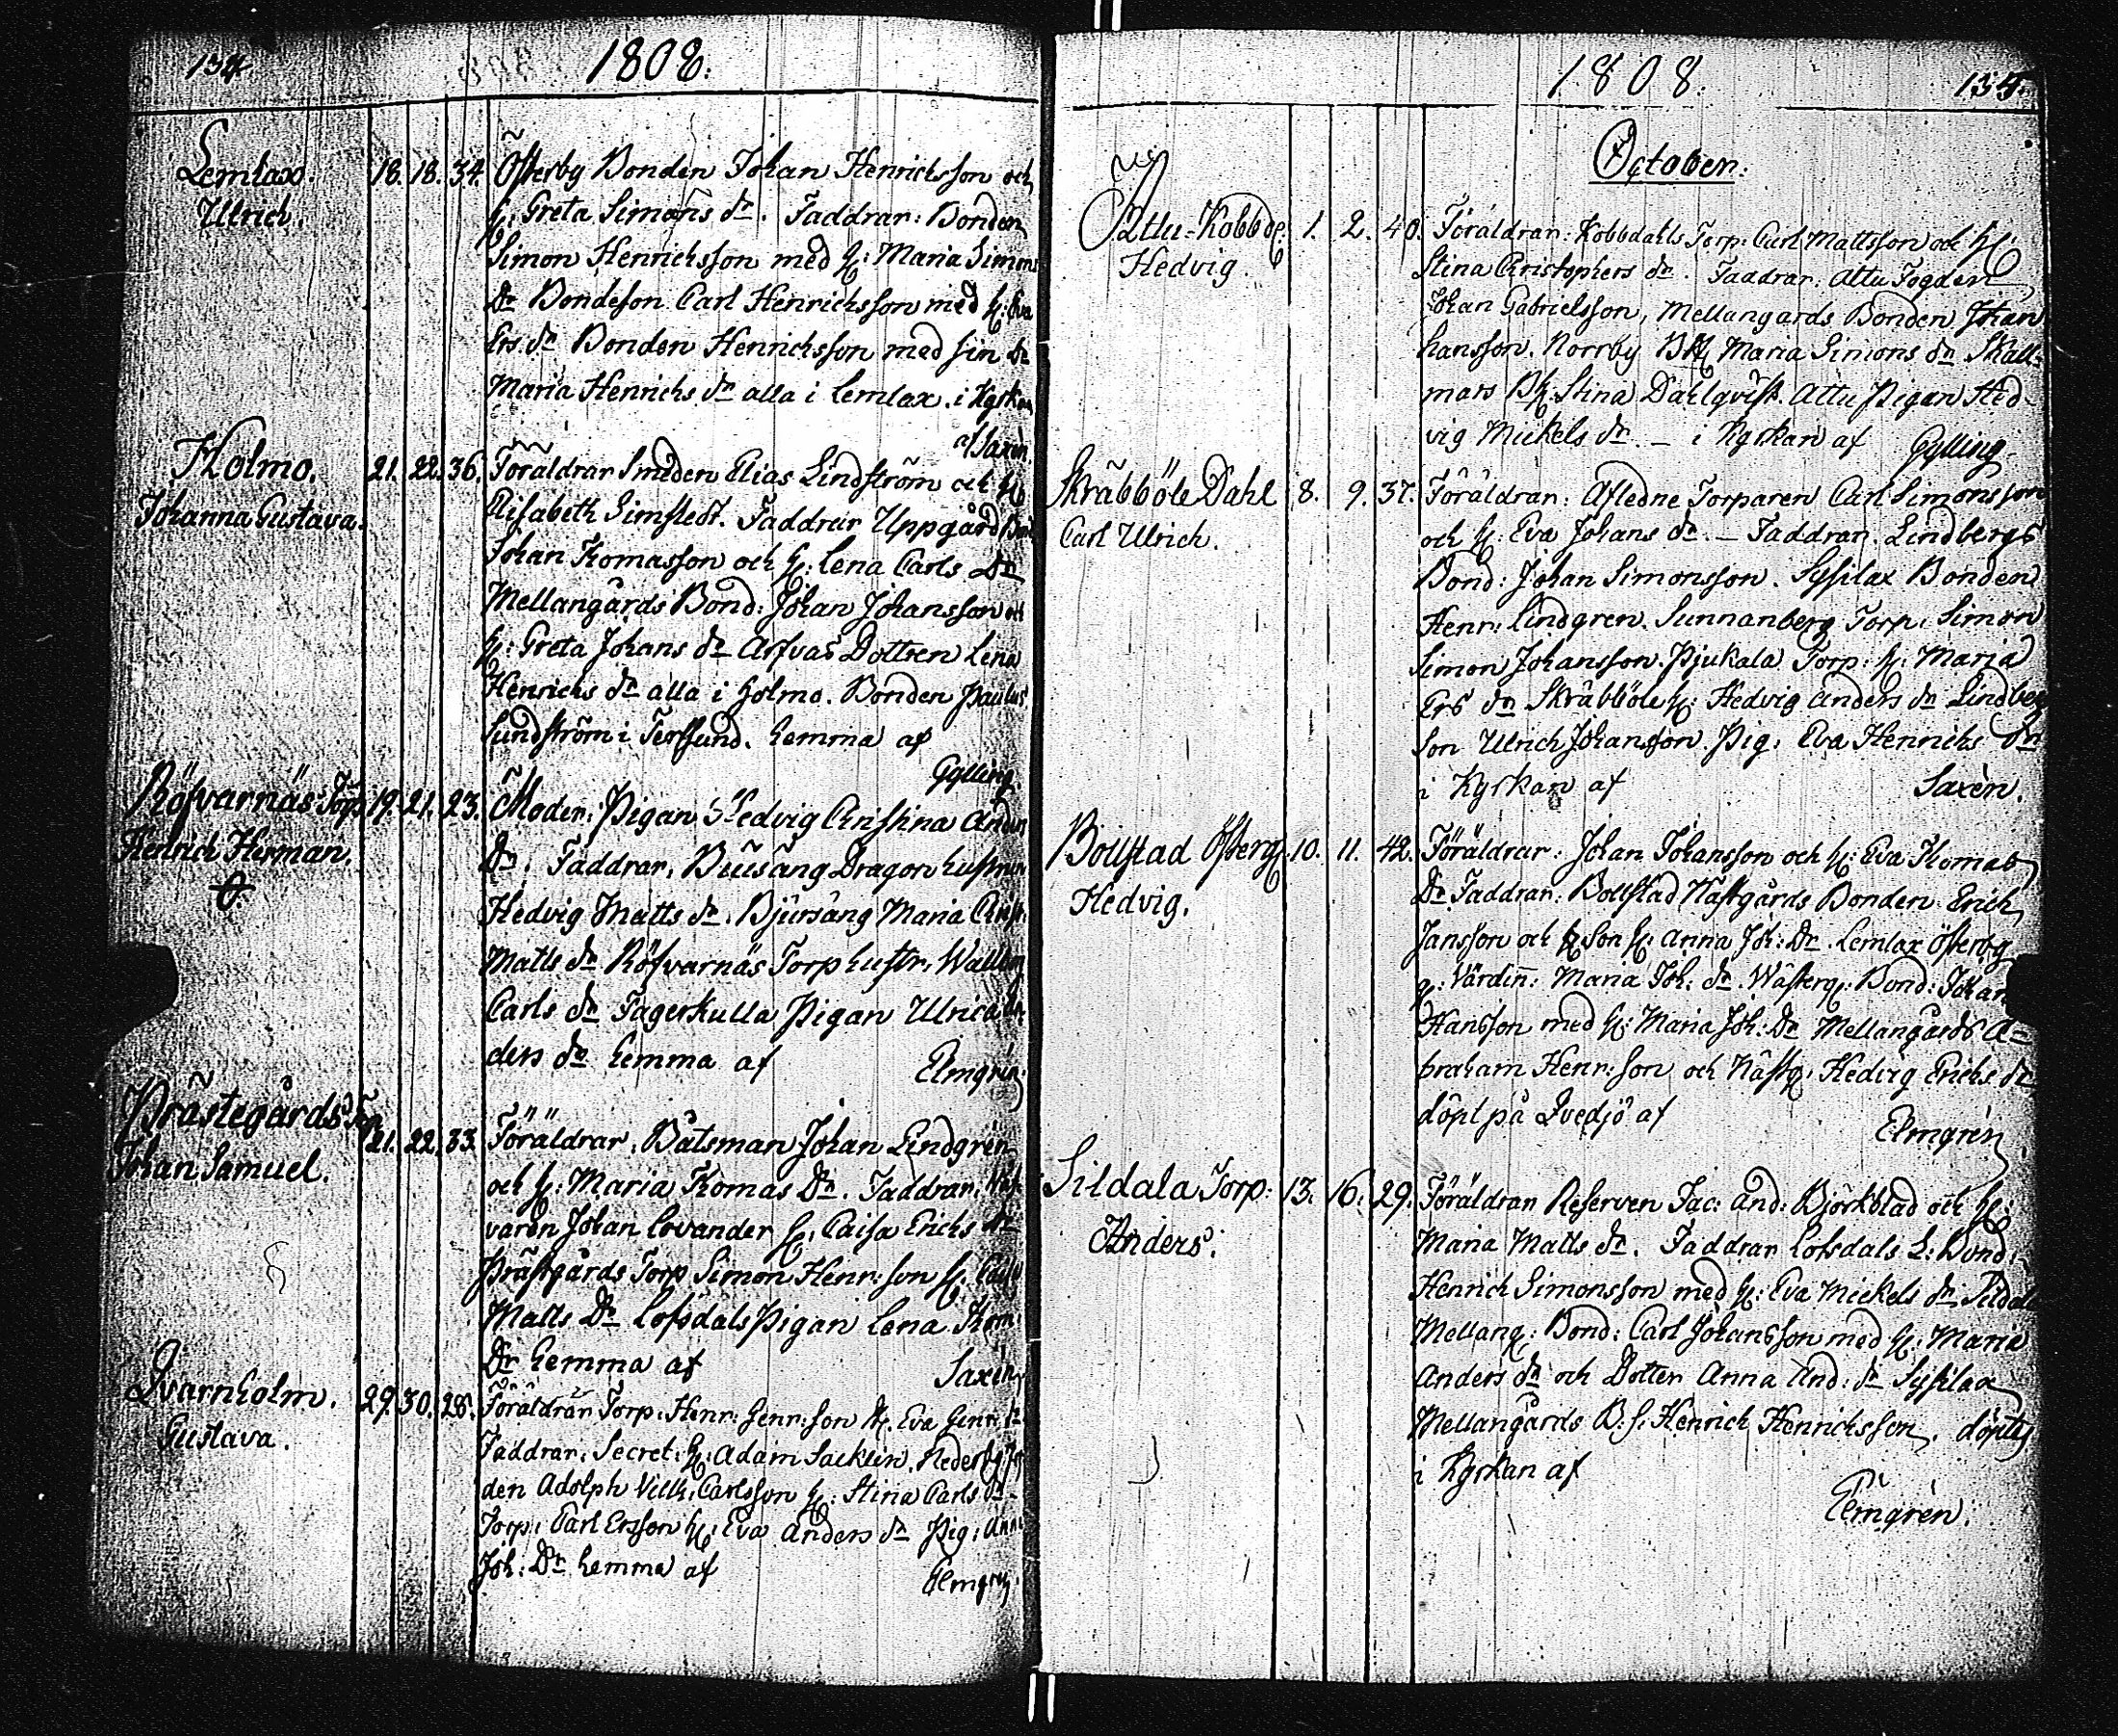 134.
1808.
Lemlax. 18. 18. 34. Österby Bonden Johan Henrichsson och
Ulrich. H: Greta Simons dr. Faddrar: Bonden
Simon Henrichsson med H: Maria Simons
Dr Bondeson Carl Henrichsson med H: Eva
Ers dr Bonden Henrichsson med sin
Maria Henrichs dr alla i Lemlax. i Kyrkan
af Saxén.
Holmo. 21. 22. 36. Föräldrar Smeden Elias Lindström och H
Johanna Gustava. Elisabeth Simstedt. Faddrar Uppgård
Johan Thomasson och H: Lena Carls Dr
Mellangårds Bond: Johan Johansson och
H: Greta Johans dr Arfvas Dottren Lena
Henrichs dr alla i Holmo. Bonden Paulus
Sundström i Terssund. hemma af
Gylling
Röfvarnäs Torp 19. 21. 23. Moder: Pigan Hedvig Christina Anders
Henrich Herman. Dr. Faddrar, Dragon hustrun
Hedvig Matts dr. Bjursäng Maria Christ:
Matts dr Röfvarnäs Torp hustr, Wallborg
Carls dr Fagerkulla Pigan Ulrica An
ders dr hemma af Elmgrén
Prästegårds Torp
Johan Samuel. 21. 22. 33. Föräldrar, Båtsman Johan Lindgrén
och H: Maria Thomas Dr. Faddrar,
varen Johan Lovander H, Caisa Erichs dr
Prästgårds Torp Simon Henr: son H. Caisa
Matts Dr Lofsdals Pigan Lena Thom
Dr hemma af Saxén
Qvarnholm. 29. 30. 28. Föräldrar Torp: Henr: Henr: son H. Eva Henr: dr
Gustava. Faddrar, Secret: H: Adam Sacklén. Nederby
den Adolph Vilh, Carlsson H: Stina Carls dr
Torp: Carl Ersson H: Eva Anders dr Pig: Anna
Joh: Dr hemma af Elmgrén
1808.
135.
October:
Attu-Kobbd: 1. 2. 40. Föräldrar: Kobbdahls Torp: Carl Mattsson och H:
Hedvig. Stina Christophers dr. Faddrar: Attu Fogden
Johan Gabrielsson, Mellangårds Bonden Johan
hansson. Norrby BH Maria Simons dr Skäll-
mars BH. Stina Dahlqvist. Attu Pigan Hed-
vig Mickels dr. – i Kyrkan af Gylling
Skräbböle Dahl 8. 9. 37. Föräldrar: Afledne Torparen Carl Simonsson
Carl Ulrich. och H: Eva Johans dr. – Faddrar. Lindbergs
Bond: Johan Simonsson. Sysilax Bonden
Henr: Lindgren. Sunnanberg Torp: Simon
Simon Johansson. Pjukala Torp: H: Maria
Ers dr Skräbböle H: Hedvig Anders dr Lindberg
son Ulrich Johansson. Pig: Eva Henrichs Dr
i Kyrkan af Saxén.
Bollstad Österg. 10. 11. 42. Föräldrar: Johan Johansson och H: Eva Thomas
Hedvig. Dr Faddrar: Bollstad Nästgårds Bonden Erich
Jansson och H Son H: Anna Joh: Dr. Lemlax Österby
g: Värdin: Maria Joh: dr. Wästerg: Bond: Johan
Hansson med H: Maria Joh: Dr Mellangårds A-
braham Henr: son och Nästg: Hedvig Erichs dr
döpt på Qvedjö af Elmgrén
Sildala Torp: 13. 16. 29. Föräldrar Reserven Jac: And: Björkblad och H:
Anders. Maria Matts dr. Faddrar Lofsdals L: Bond:
Henrich Simonsson med H: Eva Mickels dr Sildala
Mellang: Bond: Carl Johansson med H: Maria
Anders dr och Dotter Anna And: dr Sysilax
Mellangårds B: S: Henrich Henrichsson, döpt
i Kyrkan af
Elmgrén.